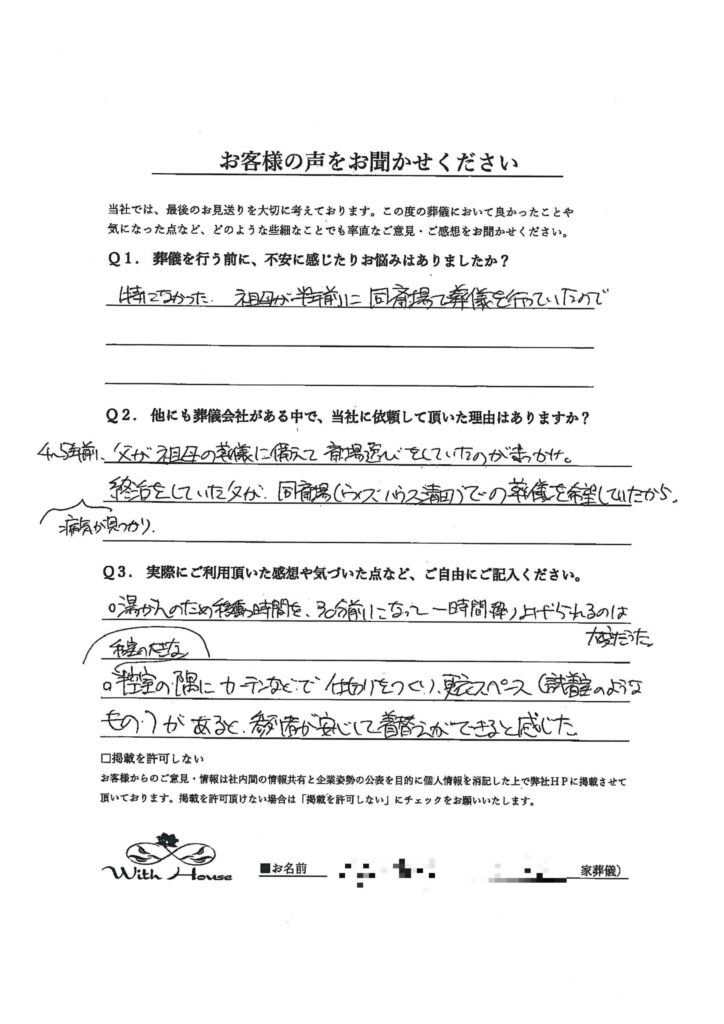 お客様の声をお聞かせください
当社では、最後のお見送りを大切に考えております。この度の葬儀において良かったことや
気になった点など、どのような些細なことでも率直なご意見・ご感想をお聞かせください。
Q1. 葬儀を行う前に、不安に感じたりお悩みはありましたか?
特になかった. 祖母が半年前に同斎場で葬儀を行っていたので
Q2. 他にも葬儀会社がある中で、当社に依頼して頂いた理由はありますか?
4〜5年前、父が祖母の葬儀に備えて斎場選びをしていたのがきっかけ。
終活をしていた父が、同斎場(ウィズハウス清田)での葬儀を希望していたから。
病気が見つかり.
Q3. 実際にご利用頂いた感想や気づいた点など、ご自由にご記入ください。
○湯かんのため移動時間を、30分前になって一時間繰り上げられるのは
大変だった。
和室の大きな
○控室の隅にカーテンなどで仕切りをつくり、更衣スペース(試着室のような
もの)があると、参列者が安心して着替えができると感じた。
□掲載を許可しない
お客様からのご意見・情報は社内間の情報共有と企業姿勢の公表を目的に個人情報を消記した上で弊社HPに掲載させて
頂いております。掲載を許可頂けない場合は「掲載を許可しない」にチェックをお願いいたします。
With House
■お名前 家葬儀)